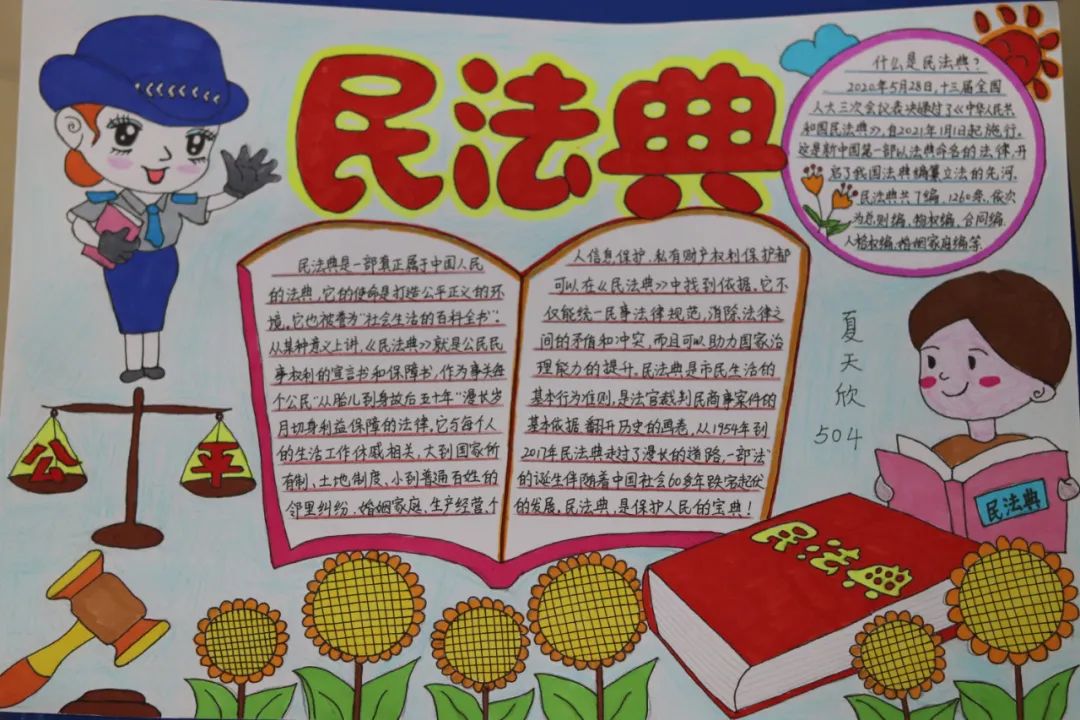 民法典
什么是民法典？
2020年5月28日，十三届全国
人大三次会议表决通过了《中华人民共
和国民法典》，自2021年1月1日起施行。
这是新中国第一部以法典命名的法律，开
启了我国法典编纂立法的先河。
民法典共7编、1260条，依次
为总则编、物权编、合同编、
人格权编、婚姻家庭编等
民法典是一部真正属于中国人民
的法典，它的使命是打造公平正义的环
境。它也被誉为"社会生活的百科全书"。
从某种意义上讲，《民法典》就是公民民
事权利的宣言书和保障书，作为事关每
个公民"从胎儿到身故后五十年"漫长岁
月切身利益保障的法律。它与每个人
的生活工作休戚相关，大到国家所
有制、土地制度，小到普通百姓的
邻里纠纷、婚姻家庭、生产经营、个
人信息保护、私有财产权利保护都
可以在《民法典》中找到依据。它不
仅能统一民事法律规范，消除法律之
间的矛盾和冲突，而且可以助力国家治
理能力的提升。民法典是市民生活的
基本行为准则，是法官裁判民商事案件的
基本依据。翻开历史的画卷，从1954年到
2017年民法典走过了漫长的道路，一部"法"
的诞生伴随着中国社会60多年跌宕起伏
的发展。民法典，是保护人民的宝典！
夏天欣
504
公 平
民法典
民法典